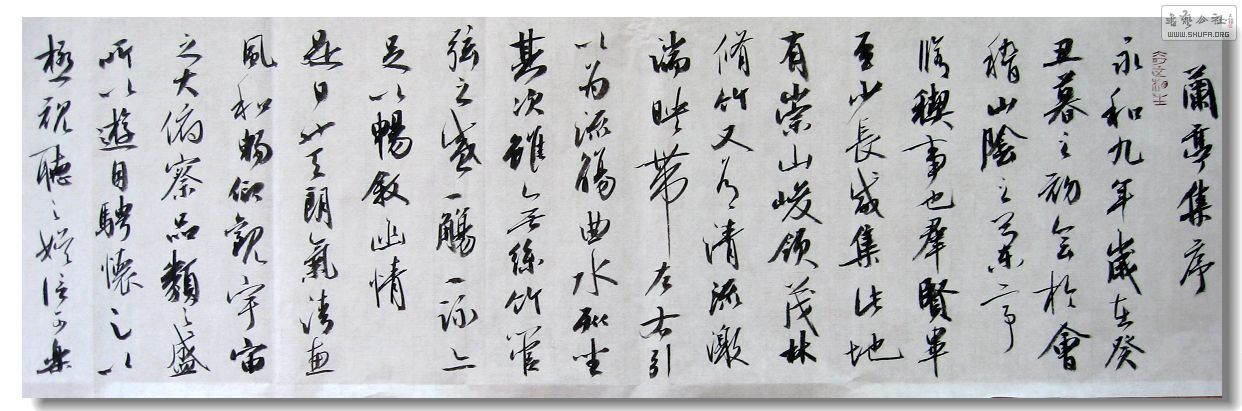 書藝公社
WWW.SHUFA.ORG
蘭亭集序
永和九年歲在癸
丑暮之初会於會
稽山陰之蘭亭
脩禊事也羣賢畢
至少長咸集此地
有崇山峻領茂林
脩竹又有清流激
湍映帶左右引
以为流觴曲水列坐
其次雖無絲竹管
弦之盛一觴一詠亦
足以暢敘幽情
是日也天朗氣清惠
風和暢仰觀宇宙
之大俯察品類之盛
所以遊目騁懷足以
極視聽之娛信可樂